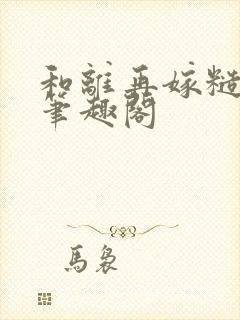 和離再嫁糙
筆趣閣
馬裊